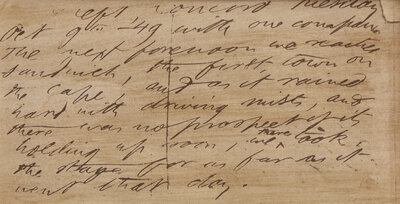 left, Concord Tuesday
Oct 9th -49 with one companion
The next forenoon we reached
Sandwich, the first town on
the Cape, and as it rained
hard with driving mists, and
there was no prospect of its
holding up soon, we there took
the stage for as far as it
went that day.